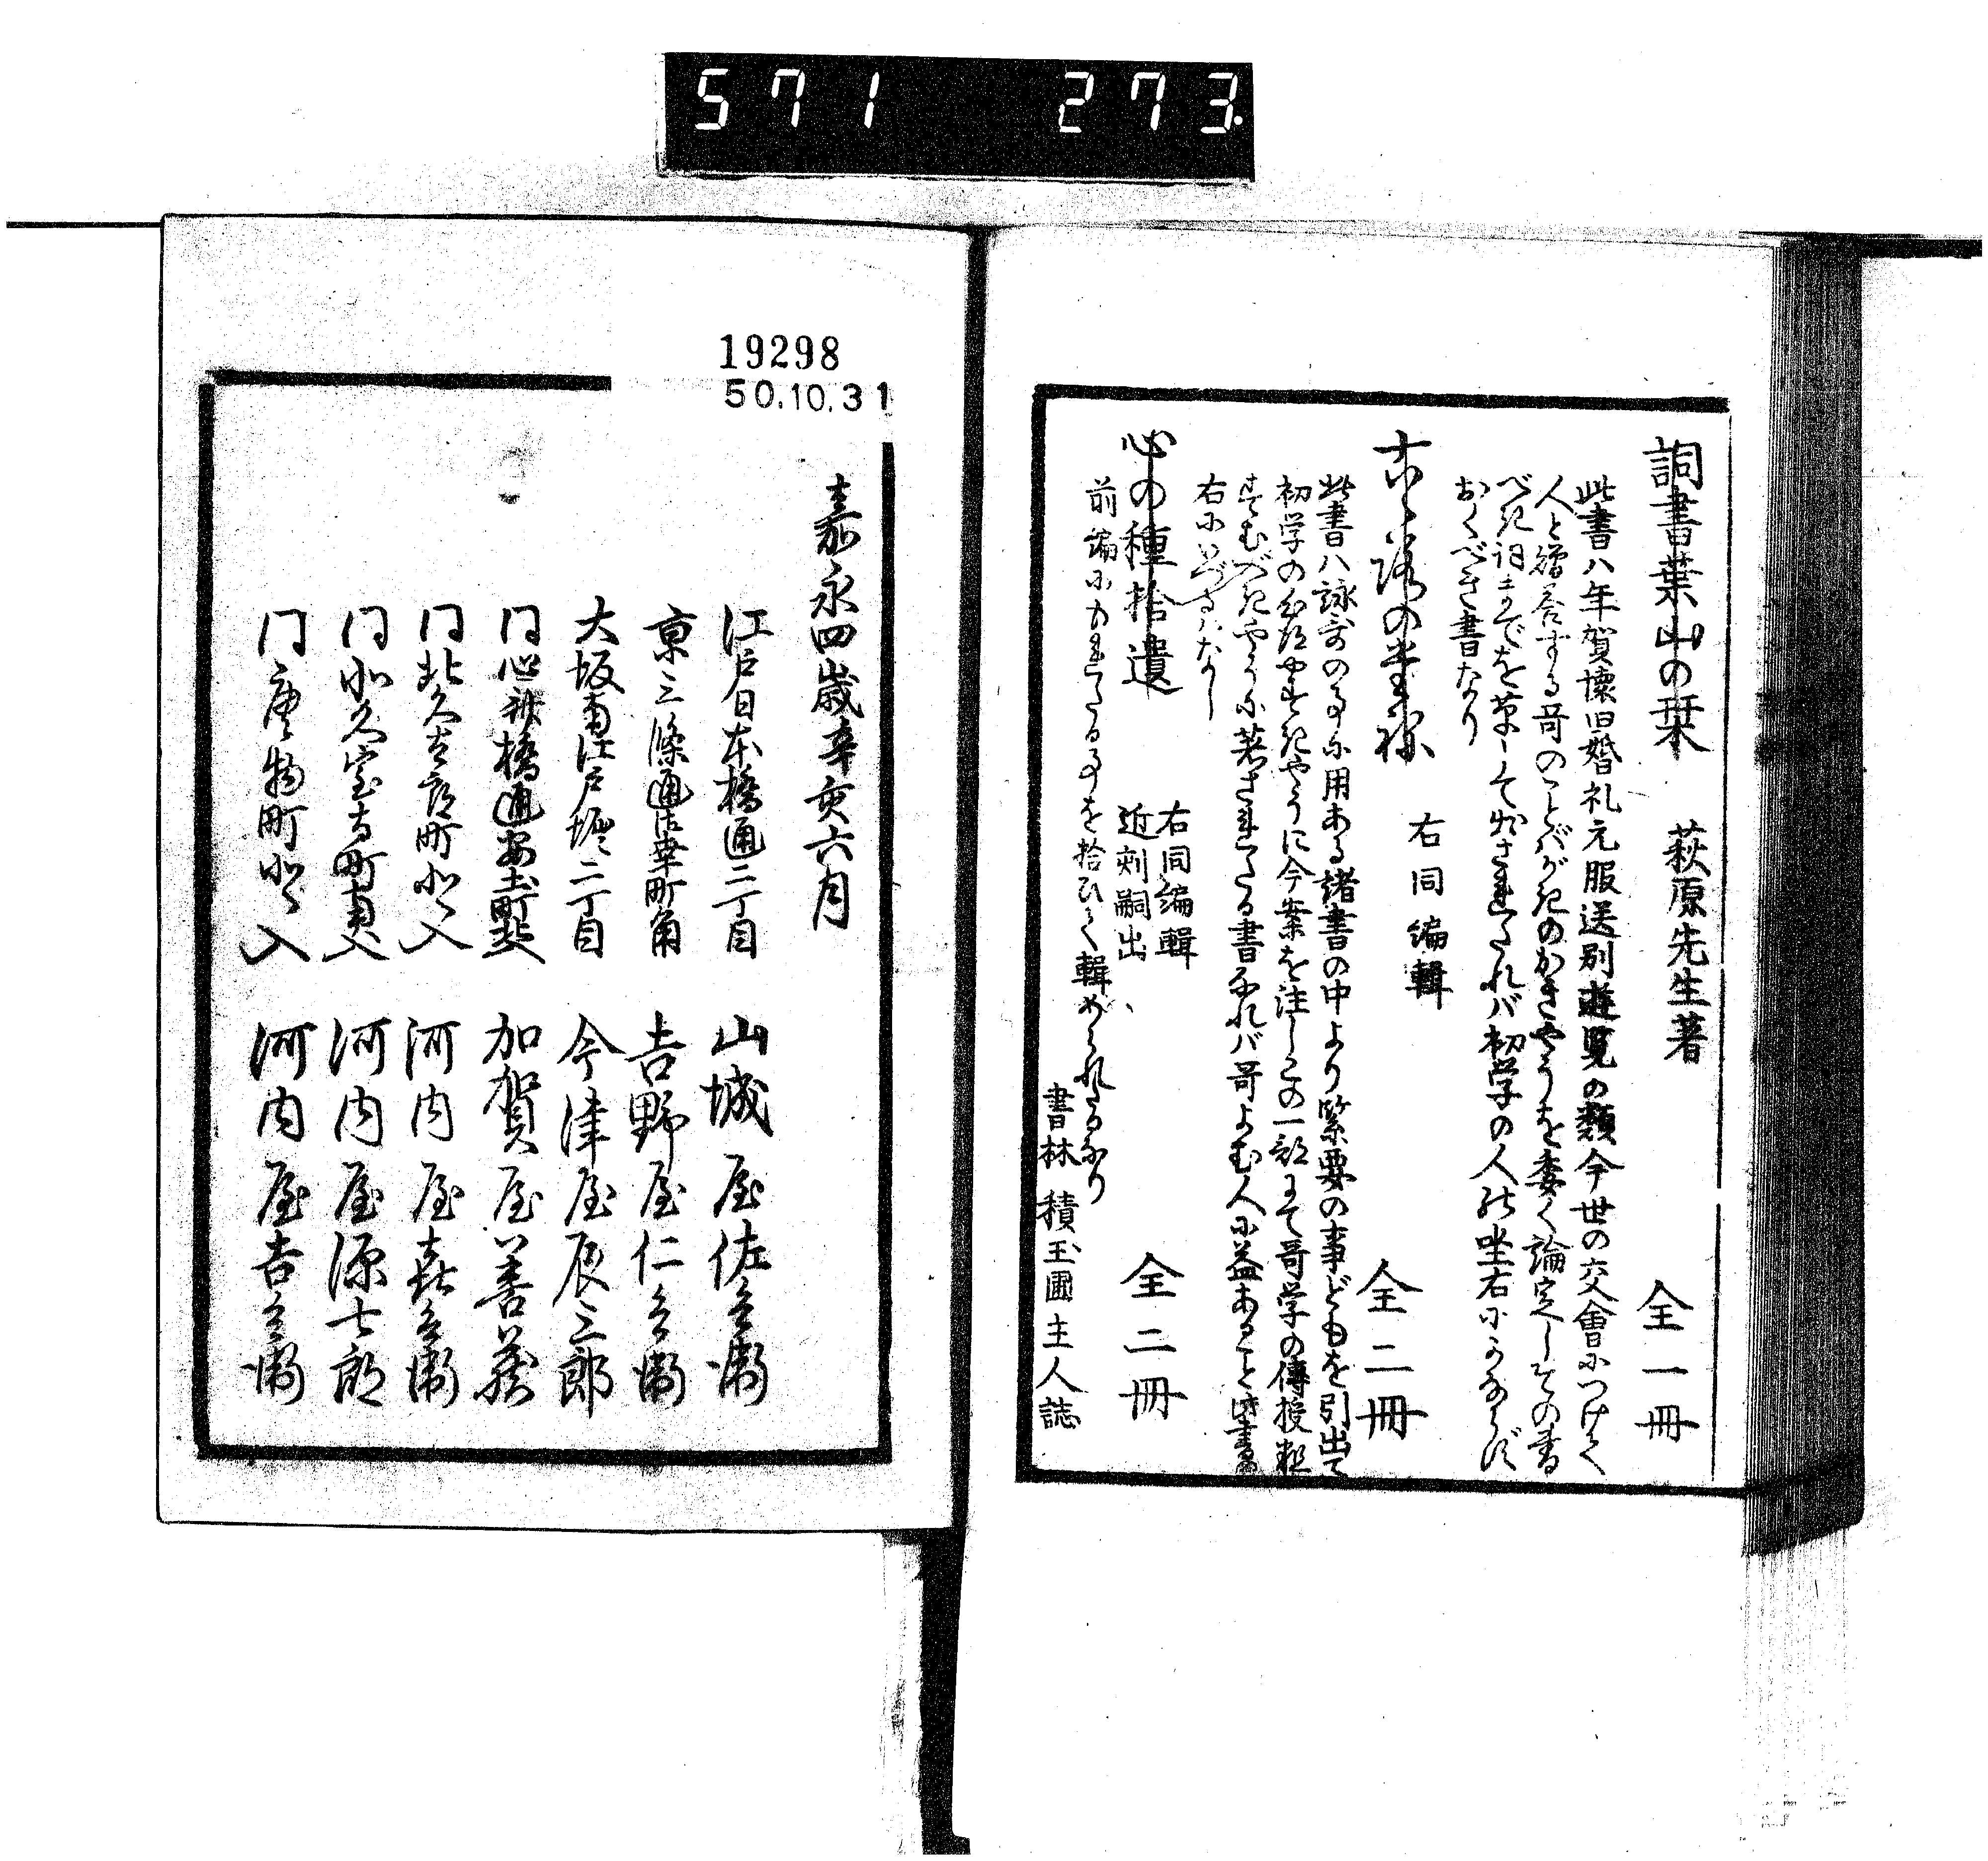 571 273.
詞書葉山の栞 萩原先生著 全一冊
此書ハ年賀懐旧婚礼元服送別遊覧の類今世の交會につけて
人と贈答する哥のことばがきのかきやうを委く論定してその書
べき詞までを草して出されたれバ初学の人の坐右にかならず
おくべき書なり
右同編輯 全二冊
此書ハ詠哥の事に用ある諸書の中より緊要の事どもを引出て
初学の やすきやうに今案を注しこの一部にて哥学の傳授
すむべきやうに著されたる書なれバ哥よむ人に益あること此書の
右にいづるハなし
心の種拾遺 右同編輯 近刻嗣出 全二冊
前編にもれたる事を拾ひて輯められたるなり
書林 積玉圃主人誌
19298
50.10.31
嘉永四歳辛亥六月
江戸日本橋通二丁目 山城屋佐兵衛
京三條通御幸町角 吉野屋仁兵衛
大坂南江戸堀二丁目 今津屋辰三郎
同心斎橋通安土町北入 加賀屋善蔵
同北久太郎町北入 河内屋喜兵衛
同北久宝寺町南入 河内屋源七郎
同唐物町北入 河内屋吉兵衛